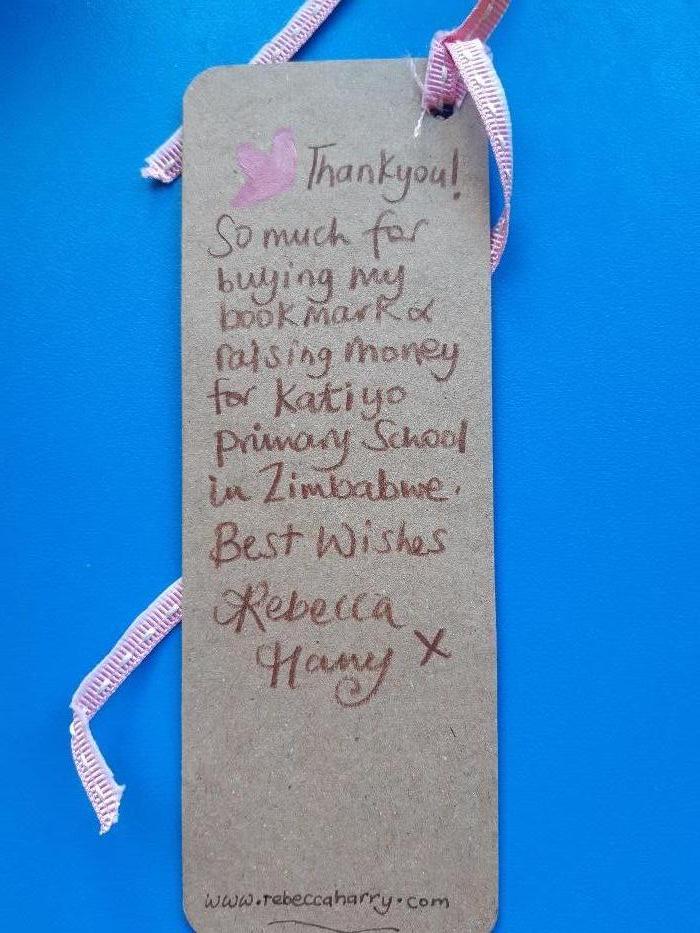 Thankyou!
So much for
buying my
bookmark &
raising money
for Katiyo
primary School
in Zimbabwe.
Best Wishes
Rebecca
Harry x
www.rebeccaharry.com